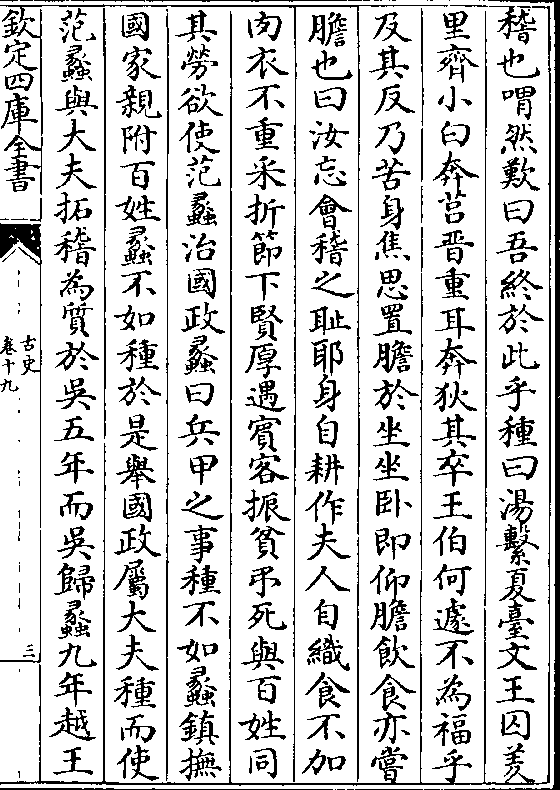 稽也喟然歎曰吾終於此乎種曰湯繫夏臺文王囚羑
里齊小白奔莒晉重耳奔狄其卒王伯何遽不為福乎
及其反乃苦身焦思置膽於坐坐卧即仰膽飲食亦嘗
膽也曰汝忘會稽之耻耶身自耕作夫人自織食不加
肉衣不重采折節下賢厚遇賓客振貧弔死與百姓同
其勞欲使范蠡治國政蠡曰兵甲之事種不如蠡鎮撫
國家親附百姓蠡不如種於是舉國政屬大夫種而使
范蠡與大夫拓稽為質於吳五年而吳歸蠡九年越王
欽定四庫全書
古史
卷十九
三